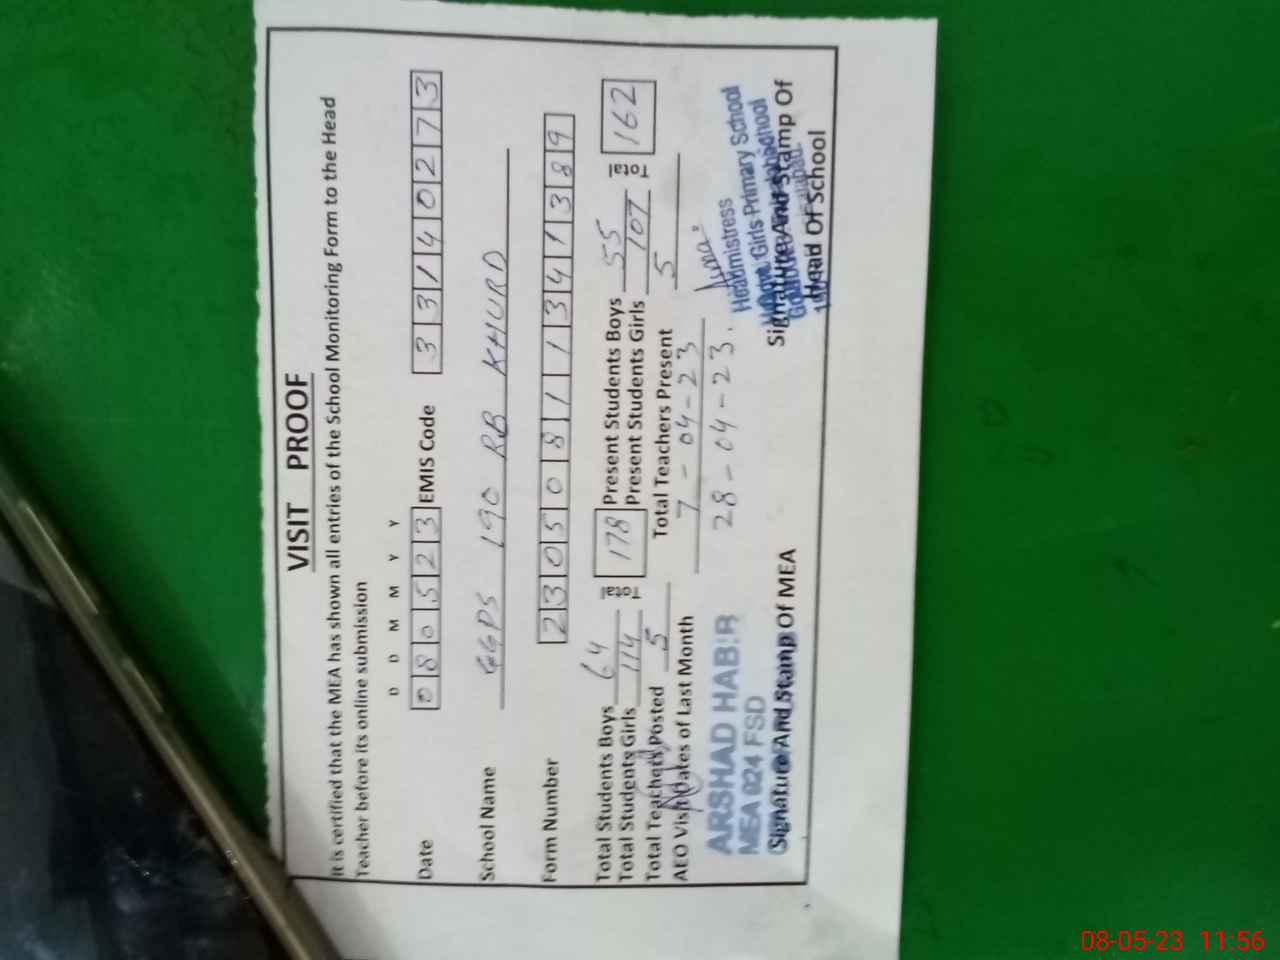 VISIT PROOF
It is certified that the MEA has shown all entries of the School Monitoring Form to the Head
Teacher before its online submission
D D M M Y Y
Date 080523 EMIS Code 33140273
School Name GGPS 190 RB KHURD
Form Number 23050811341389
Total Students Boys 64 Total 178 Present Students Boys 55 Total 162
Total Students Girls 114 Present Students Girls 107
Total Teachers Posted 5 Total Teachers Present 5
AEO Visit Dates of Last Month 7-04-23
28-04-23.
ARSHAD HABIB
MEA 024 FSD
Signature And Stamp Of MEA
Headmistress
Govt. Girls Primary School
Signature And Stamp Of
Head Of School
08-05-23 11:56